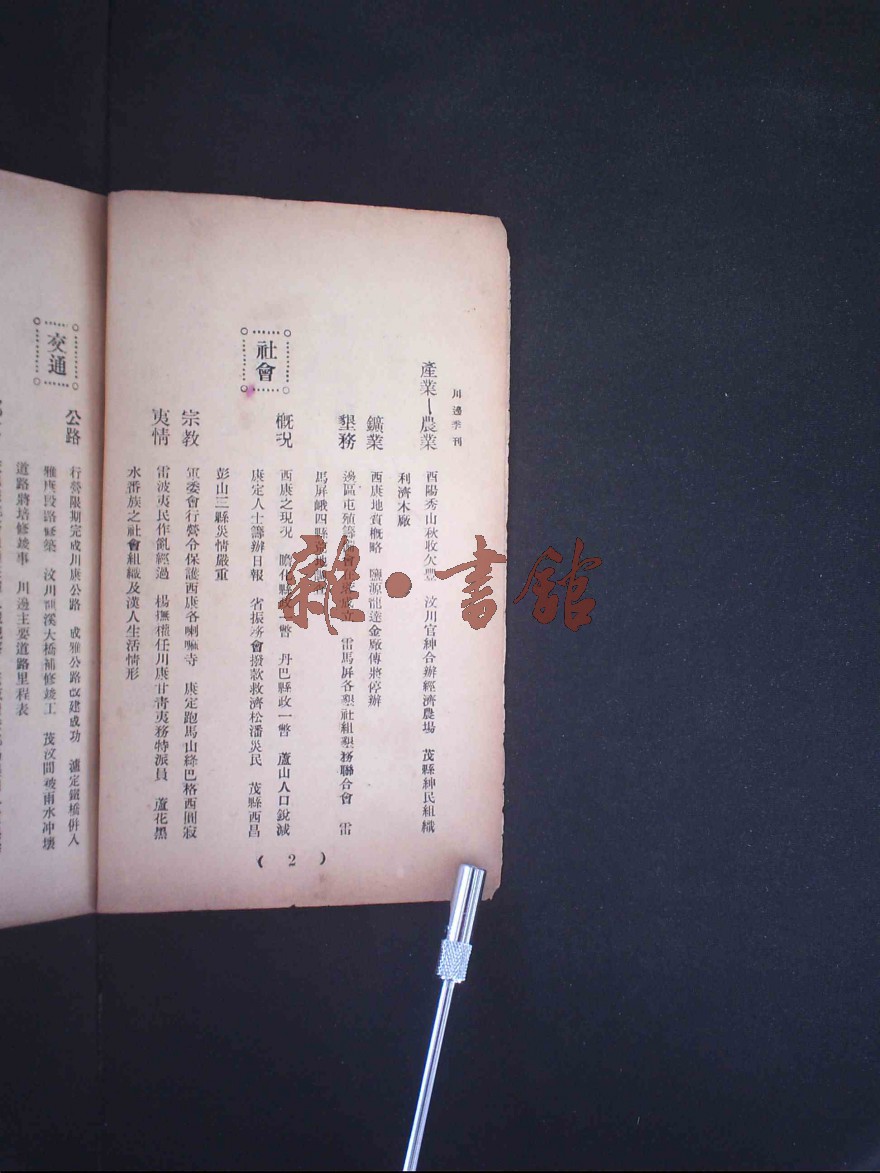 川邊季刊
產業—農業
酉陽秀山秋收欠豐　汶川官紳合辦經濟農場　茂縣紳民組織
利濟木廠
鑛業
西康地質概略　鹽源龍達金廠傳將停辦
墾務
邊區屯殖籌　會　成立　雷馬屏各墾社組墾務聯合會　雷
馬屏峨四縣　地
社會
概況
西康之現況　瞻化縣政一瞥　丹巴縣政一瞥　蘆山人口銳減
康定人士籌辦日報　省振濟會撥款救濟松潘災民　茂縣西昌
彭山三縣災情嚴重
宗教
軍委會行營令保護西康各喇嘛寺　康定跑馬山綠巴格西圓寂
夷情
雷波夷民作亂經過　楊撫權任川康甘青夷務特派員　蘆花黑
水番族之社會組織及漢人生活情形
( 2 )
交通
公路
行營限期完成川康公路　成雅公路改建成功　瀘定鐵橋併入
雅康段路修築　汶川　溪大橋補修竣工　茂汶間被雨水冲壞
道路將培修竣事　川邊主要道路里程表
雜·書館